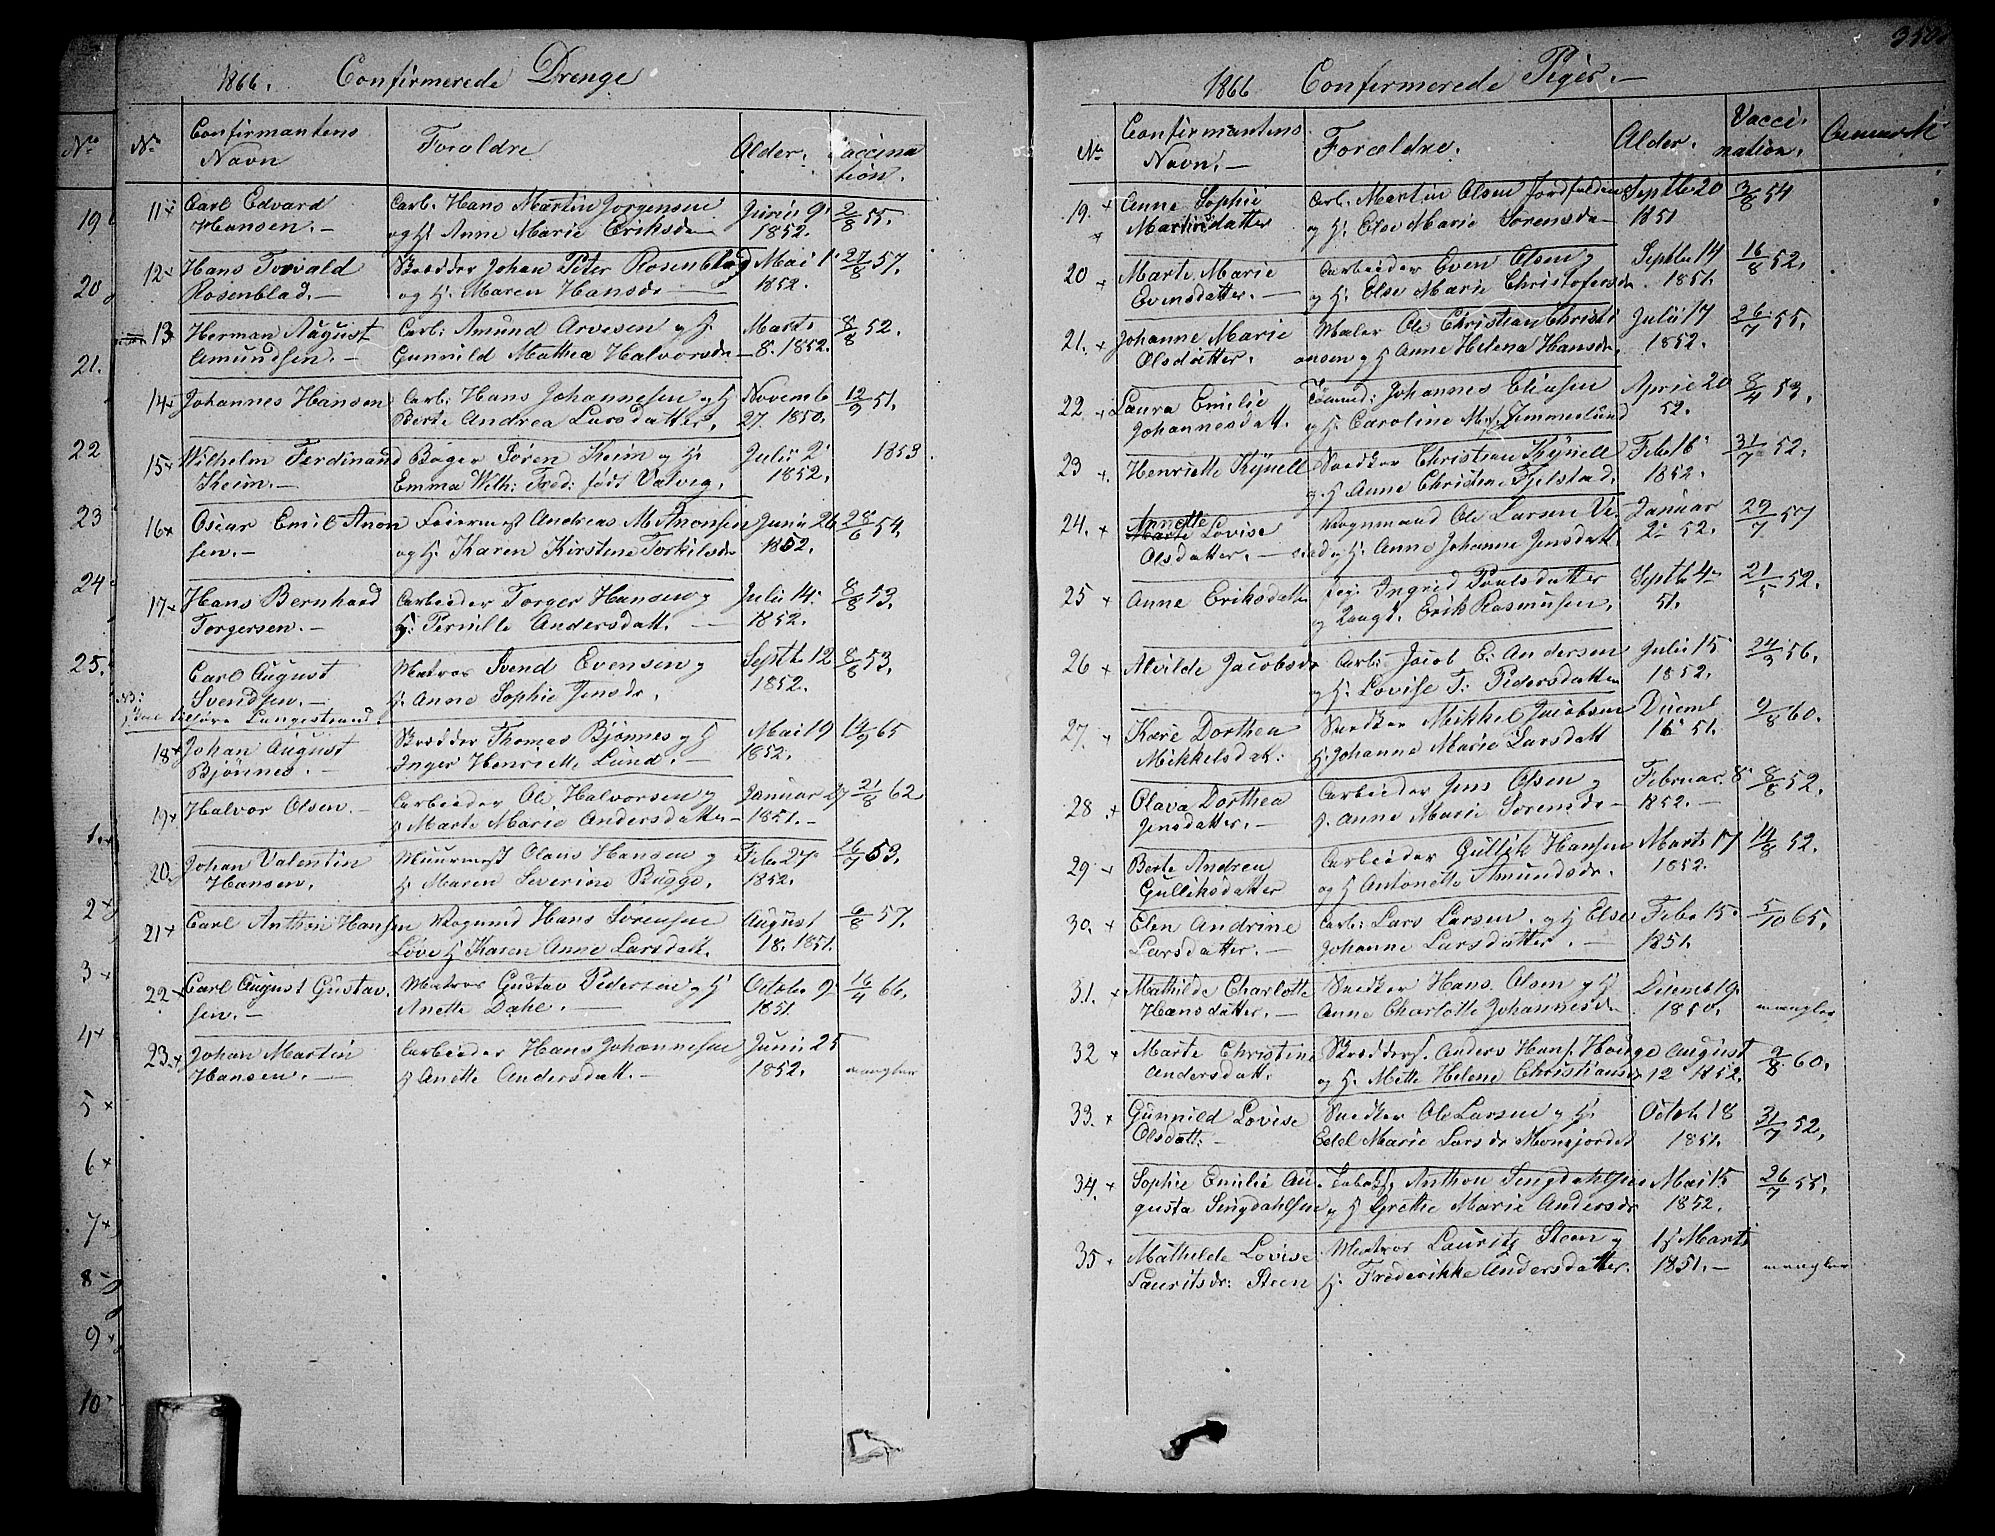 1866. Confirmerede Drenge
No Confirmantens Navn Forældre Alder. Vaccination.
11 Carl Edvard Arb. Hans Martin Jørgensen Junii 9 2/8 55.
Hansen. og H. Anne Marie Eriksdr 1852.
12 Hans Torvald Skrædder Johan Peter Rosenblad Mai 1 27/8 57.
Rosenblad. og H. Maren Hansdr 1852.
13 Herman August Arb: Amund Arvesen og H. Marts 8/8 52.
Amundsen. Gunnild Mathea Halvorsdr 8. 1852.
14 Johannes Hansen Arb: Hans Johannesen og H Novemb 12/9 51.
Berte Andrea Larsdatter. 27. 1850.
15 Wilhelm Ferdinand Bager Søren Keim og H. Julii 2 1853
Keim. Emma Wilh: Fred: født Valvig. 1852.
16 Oscar Emil Anon Feiermest Andreas M. Anonsen Junii 26 28/6 54.
sen. og H. Karen Kirstine Torkildsdr 1852.
17 Hans Bernhard Arbeider Torger Hansen og Julii 14. 8/8 53.
Torgersen. H: Pernille Andersdatt. 1852.
Carl August Matros Svend Evensen og Septb 12 8/8 53.
Svendsen. H. Anne Sophie Jensdr. 1852.
NB: skal tilføre Langestrand
18 Johan August Skrædder Thomas Bjønnes og H Mai 19 14/9 65
Bjønnes. Inger Henriette Lund. 1852.
19 Halvor Olsen. Arbeider Ole Halvorsen og Januar 27 21/8 62
H Marte Marie Andersdatter 1851.
20. Johan Valentin Muurmest Olaus Hansen og Feb. 27 26/7 53.
Hansen. H Maren Severine Bugge. 1852.
21 Carl Anthon Hansen Vognmd Hans Sørensen August 6/8 57.
Løve H Karen Anne Larsdatt. 18. 1851.
22 Carl August Gustav. Matros Gustav Pedersen og H Octob 9 16/4 66.
sen. Anette Dahl. 1851.
23. Johan Martin Arbeider Hans Johannesen Junii 25
Hansen. H Anette Andersdatt. 1852. mangler
1866 Confirmerede Piger.
No Confirmantens Navn. Forældre. Alder. Vaccination. Anmærk
19. Anne Sophie Arb. Martin Olsen Jordfalden Septb 20 3/8 54
Martinsdatter og H. Else Marie Sørensdr 1851
20 Marte Marie Arbeider Even Olsen og Septb 14 16/8 52.
Evensdatter. H. Else Marie Christofersdr 1851.
21. Johanne Marie Maler Ole Christian Christi Julii 17 26/7 55.
Olsdatter. ansen og H Anne Helena Hansdr. 1852.
22 Laura Emilie Tømmd: Johannes Eliasen April 20 8/4 53.
Johannesdatt. og H. Caroline Ms Semmerlund 52.
23 Henriette Kynell Snedker Christian Kynell Feb. 16 31/7 52.
og H Anne Christine Fjelstad. 1852.
24. Annette Lovise Vognmand Ole Larsen Ve Januar 29/7 57
Olsdatter. sted og H. Anne Johanne Jensdatt. 2 52.
25 Anne Eriksdatt Pige Ingrid Poulsdatter Septb 4 21/5 52.
og Ungk. Erik Rasmusen. 51.
26 Alvilde Jacobsdr Arb: Jacob E: Andersen Julii 15 24/3 56.
og H. Lovise T: Pedersdatter 1852.
27. Kære Dorthea Snedker Mikkel Jacobsen Decemb 9/8 60.
Mikkelsdatt: H. Johanne Marie Larsdatt 16 51.
28 Olava Dorthea Arbeider Jens Olsen og Februar. 8 8/8 52.
Jensdatter. H. Anne Marie Sørensdr 1852.
29 Berte Andrea Arbeider Gullik Hansen Marts 17 14/8 52.
Gulliksdatter og H Antonette Amundsdr. 1852.
30. Elen Andrine Arb: Lars Larsen. og H Else Feb. 15. 5/10 65.
Larsdatter. Johanne Larsdatter. 1851.
31. Mathilde Charlotte Snedker Hans Olsen og H Decemb 19.
Hansdatter. Anne Charlotte Johannesdr 1850. mangler
32 Marte Christine Skrædders. Anders Hans. Houge August 9/8 60.
Andersdatt. og H. Mette Helene Christiansdr 12 1852.
33. Gunnild Lovise Snedker Ole Larsen og H. Octob 18 31/7 52.
Olsdatt: Edel Marie Larsdr Monsjordet 1851.
34. Sophie Emilie Au- Anthon Singdahlsen Mai 15 26/7 55.
gusta Singdahlsen og H Grethe Marie Andersdr 1852.
35 Mathilde Lovise Matros Lauritz Steen og 14 Marts
Lauritsdr: Steen H. Frederikke Andersdatter. 1851. mangler
No
19
20
21.
22
23
24
25.
1.
2
3
4
5
6
7
8
9
10